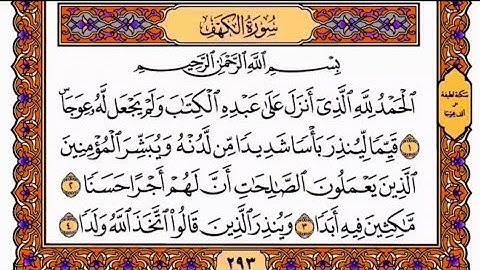 سُورَةُ الكَهْفِ
بِسْمِ اللَّهِ الرَّحْمَٰنِ الرَّحِيمِ
الْحَمْدُ لِلَّهِ الَّذِي أَنزَلَ عَلَىٰ عَبْدِهِ الْكِتَابَ وَلَمْ يَجْعَل لَّهُ عِوَجَا ۜ
١ قَيِّمًا لِّيُنذِرَ بَأْسًا شَدِيدًا مِّن لَّدُنْهُ وَيُبَشِّرَ الْمُؤْمِنِينَ
الَّذِينَ يَعْمَلُونَ الصَّالِحَاتِ أَنَّ لَهُمْ أَجْرًا حَسَنًا ٢
مَّاكِثِينَ فِيهِ أَبَدًا ٣ وَيُنذِرَ الَّذِينَ قَالُوا اتَّخَذَ اللَّهُ وَلَدًا ٤
٢٩٣
سكتة لطيفة